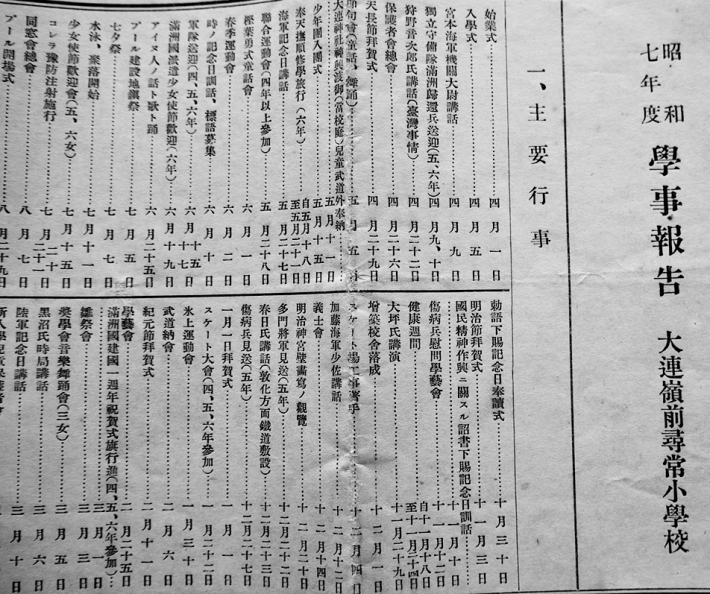 昭和七年度 學事報告 大連嶺前尋常小學校
一、主要行事
始業式…四月一日
入學式…四月五日
宮本海軍機關大尉講話…四月九日
獨立守備隊滿洲歸還兵送迎(五、六年)…四月九、十日
狩野音次郎氏講話(臺灣事情)…四月二十二日
保護者會總會…四月二十六日
天長節拜賀式…四月二十九日
句會(童話、舞踊)…五月五日
大連神社神輿渡御(當校庭)兒童武道外奉納…五月十一日
少年團入團式…五月十五日
奉天撫順修學旅行(六年)…自五月十八日至五月二十日
海軍記念日講話…五月二十七日
聯合運動會(四年以上參加)…五月二十八日
樫葉勇式童話會…六月一日
春季運動會…六月二日
時ノ記念日訓話、標語募集…六月十日
軍隊送迎(四、五、六年)…六月十五日十七日
滿洲國派遣少女使節歡迎(六年)…六月十九日
アイヌ人ノ話ト歌ト踊…六月二十五日
プール建設地鎭祭…七月五日
七夕祭…七月七日
水泳、聚落開始…七月十一日
少女使節歡迎會(五、六女)…七月十五日
コレラ豫防注射施行…七月二十日二十一日
同窓會總會…八月七日
プール開場式…八月二十九日
勅語下賜記念日奉讀式…十月三十日
明治節拜賀式…十一月三日
國民精神作興ニ關スル詔書下賜記念日訓話…十一月十日
傷病兵慰問學藝會…十一月十二日
健康週間…自十一月十八日至十一月二十四日
大坪氏講演…十一月二十九日
增築校舍落成…十二月一日
スケート場工事著手…十二月四日
加藤海軍少佐講話…十二月十二日
義士會…十二月十四日
明治神宮壁畫寫ノ觀覽…十二月二十日
多門將軍見送(五年)…十二月二十二日
春日氏講話(敦化方面鐵道敷設)…十二月二十三日
傷病兵見送(五年)…十二月二十七日
一月一日拜賀式…一月一日
スケート大會(四、五、六年參加)…一月二十二日
氷上運動會…一月三十日
武道納會…二月六日
紀元節拜賀式…二月十一日
學藝會…二月二十五日
滿洲國建國一週年祝賀式旗行進(四、五、六年參加)…三月一日
雛祭會…三月三日
奬學會音樂舞踊會(三女)…三月五日
黑沼氏時局講話…三月六日
陸軍記念日講話…三月十日